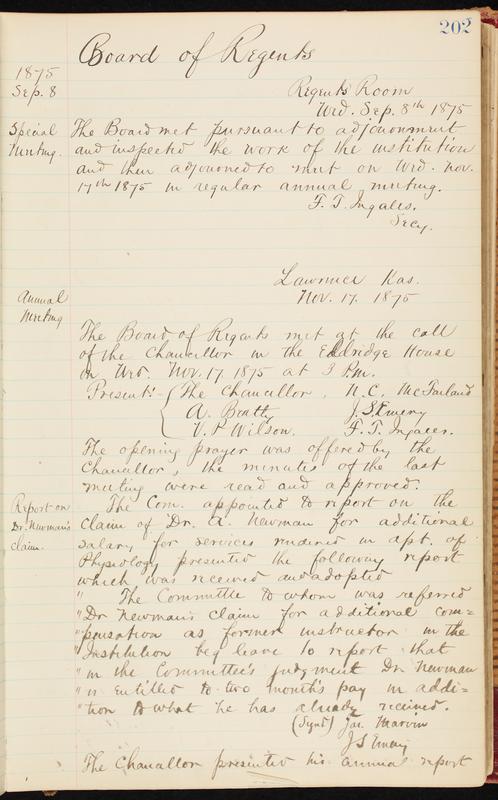 202
Board of Regents
1875
Sep. 8
Regents Room
Wed. Sep. 8th 1875
Special
Meeting.
The Board met pursuant to adjournment
and inspected the work of the institution
and then adjourned to meet on Wed. Nov.
17th 1875 in regular annual meeting.
F. T. Ingalls.
Secy.
Lawrence Kas.
Nov. 17. 1875
Annual
Meeting
The Board of Regents met at the call
of the Chancellor in the Eldridge House
on Wed. Nov. 17 1875 at 3 P.m.
Present: The Chancellor, N. C. McFarland
A. Beatty J. S. Emery
V. P. Wilson. F. T. Ingalls.
The opening prayer was offered by the
Chancellor, the minutes of the last
meeting were read and approved.
Report on
Dr. Newman's
claim.
The Com. appointed to report on the
claim of Dr. A. Newman for additional
salary for services rendered in dpt. of
Physiology presented the following report
which was received and adopted
" The Committee to whom was referred
" Dr Newman's claim for additional com=
" pensation as former instructor in the
" Institution beg leave to report that
" in the Committee's judgment Dr. Newman
" is entitled to two month's pay in addi=
" tion to what he has already received.
(Signd) Jas. Marvin
J S Emery
The Chancellor presented his annual report